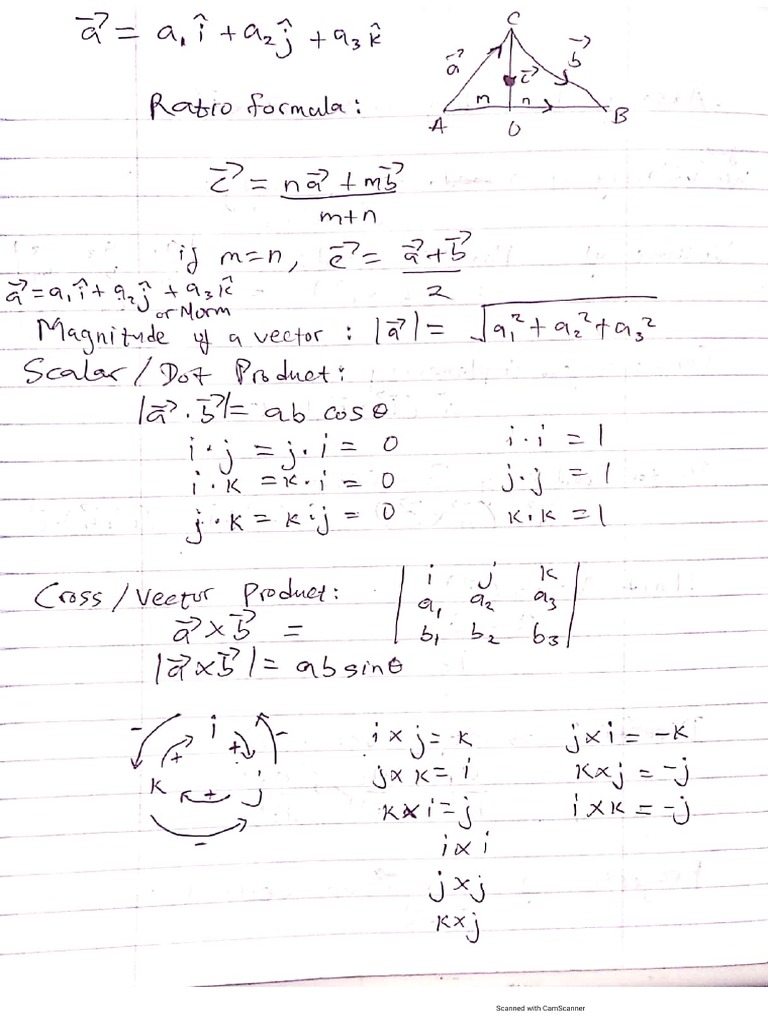 a⃗ = a₁î + a₂ĵ + a₃k̂
C
a⃗
b⃗
c⃗
m n
A O B
Ratio formula:
c⃗ = na⃗ + mb⃗
m+n
if m=n, c⃗ = a⃗+b⃗
2
a⃗ = a₁î + a₂ĵ + a₃k̂
or Norm
Magnitude of a vector : |a⃗| = √a₁² + a₂² + a₃²
Scalar / Dot Product:
|a⃗ . b⃗| = ab cos θ
i . j = j . i = 0 i . i = 1
i . k = k . i = 0 j . j = 1
j . k = k . j = 0 k . k = 1
Cross / Vector Product: | i j k |
| a₁ a₂ a₃ |
a⃗ × b⃗ = | b₁ b₂ b₃ |
|a⃗ × b⃗| = ab sin θ
- i -
+ +
k + j
-
i × j = k j × i = -k
j × k = i k × j = -j
k × i = j i × k = -j
i × i
j × j
k × j
Scanned with CamScanner